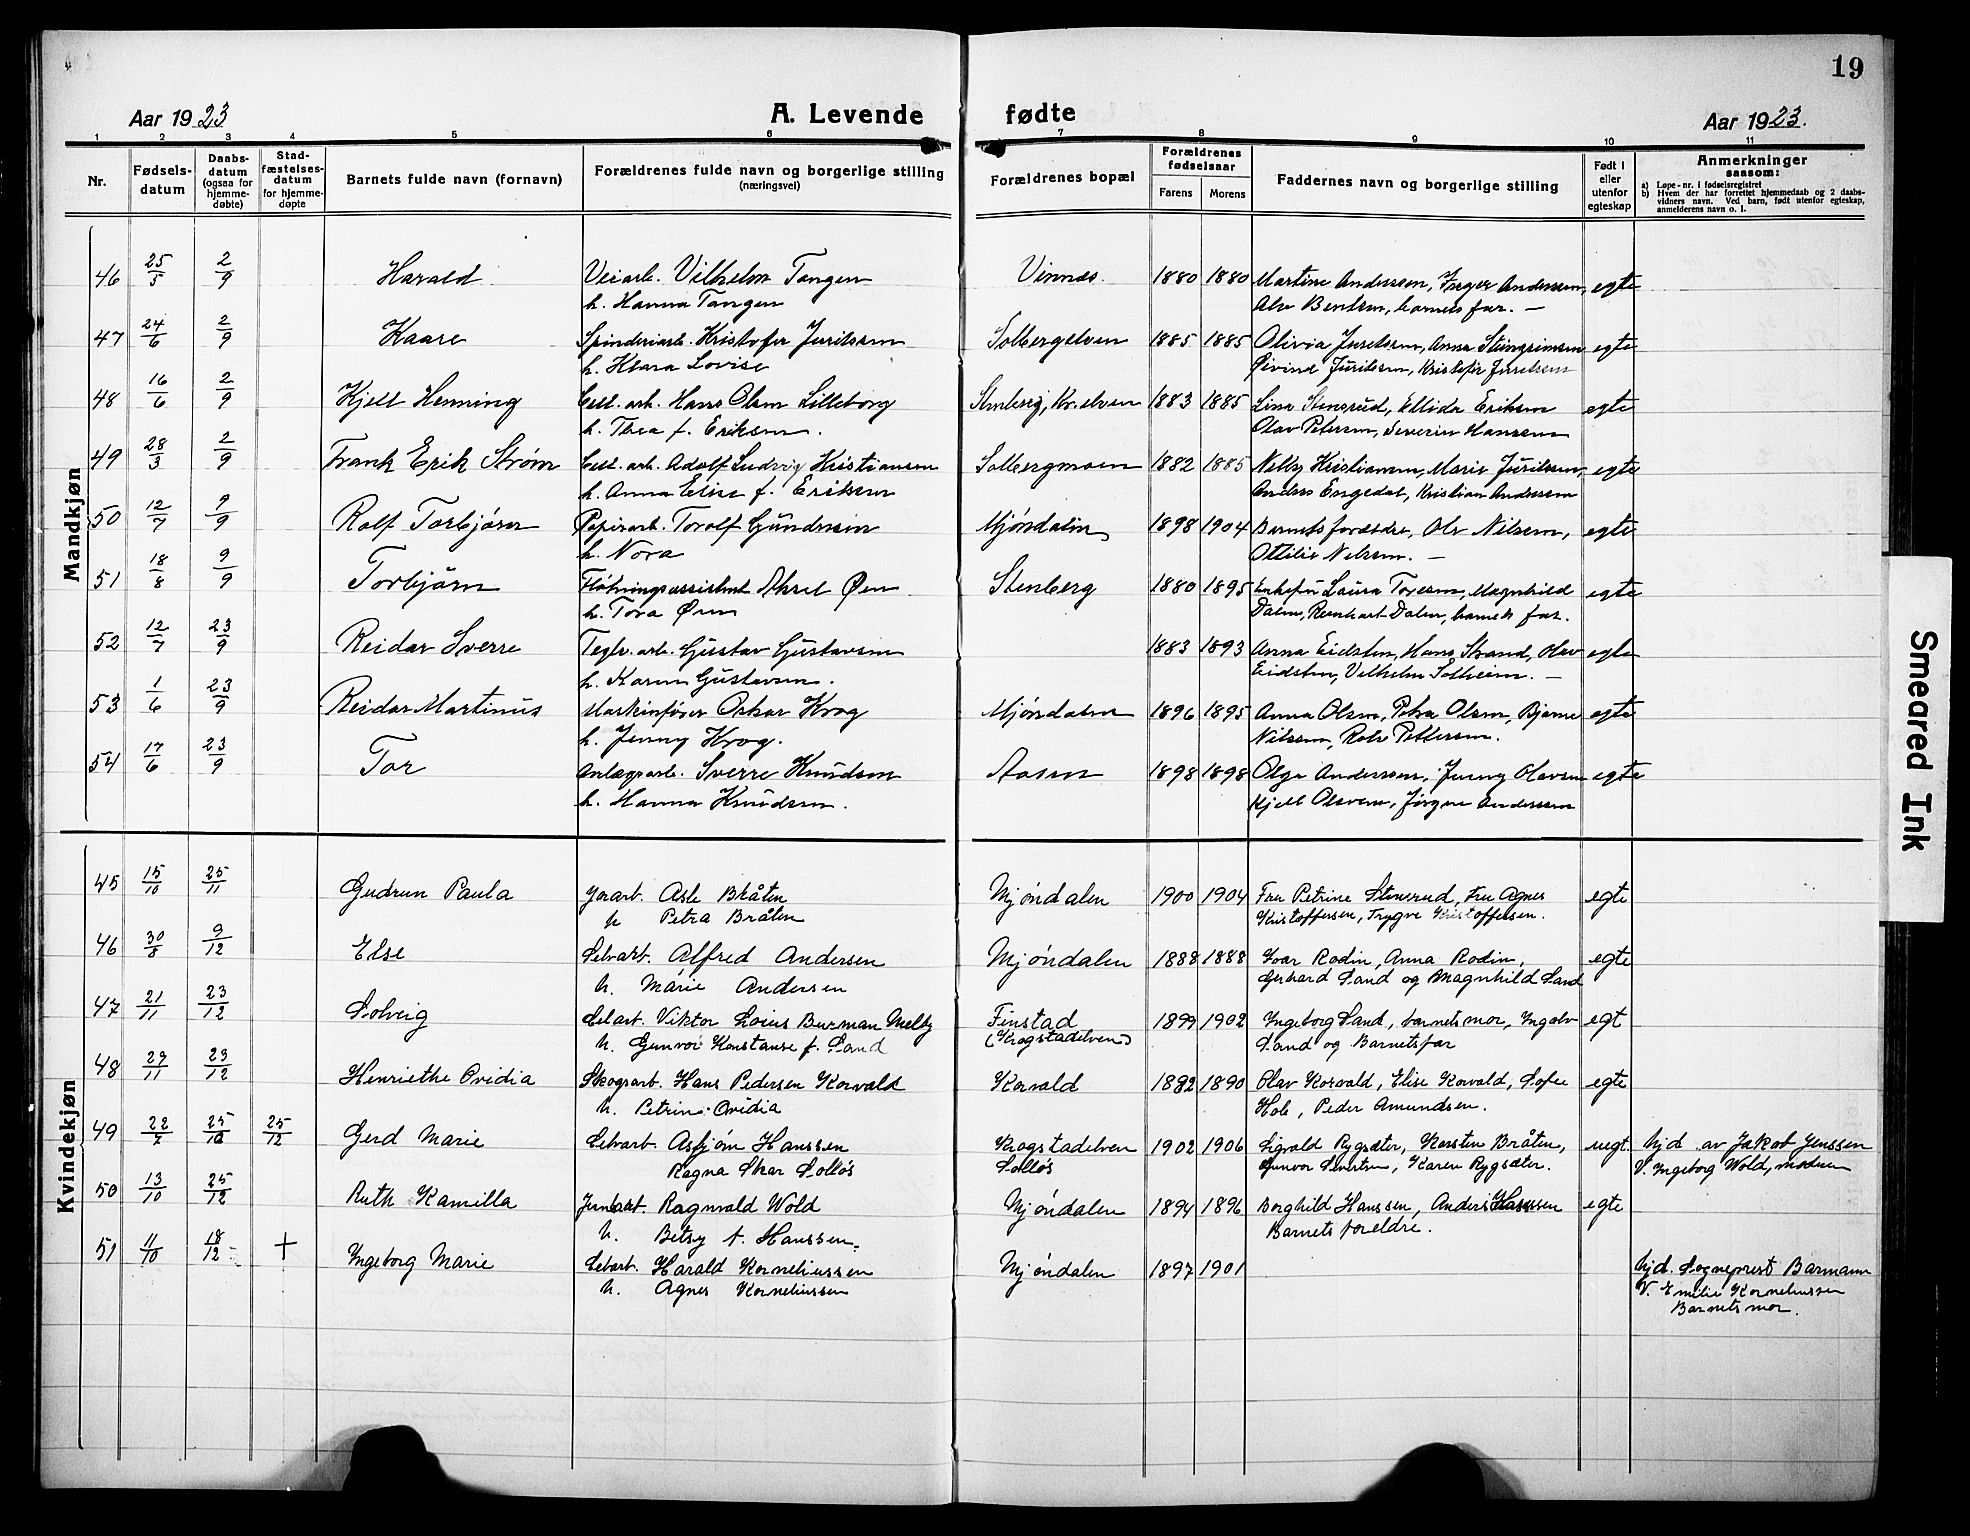 19
Aar 1923
A. Levende fødte
Aar 1923.
1 2 3 4 5 6 7 8 9 10 11
Nr.
Fødsels-
datum
Daabs-
datum
(ogsaa for
hjemme-
døbte)
Stad-
fæstelses-
datum
for hjemme-
døpte
Barnets fulde navn (fornavn)
Forældrenes fulde navn og borgerlige stilling
(næringsvei)
Forældrenes bopæl
Forældrenes
fødselsaar
Farens Morens
Faddernes navn og borgerlige stilling
Født i
eller
utenfor
egteskap
Anmerkninger
saasom:
a) Løpe-nr. i fødselsregistret
b) Hvem der har forrettet hjemmedaab og 2 daabs-
vidners navn. Ved barn, født utenfor egteskap,
anmelderens navn o. l.
Mandkjøn
46 25/5 2/9 Harald Veiarb. Vilhelm Tangen Vinnes. 1880 1880 Martine Anderssen, Inger Anderssen, egte
h. Hanna Tangen Alv Bentsen, barnets far. —
47 24/6 2/9 Kaare Spinderiarb. Kristofer Juritssen Solbergelven 1885 1885 Olivia Juritssen, Anna Steingrimsen egte
h. Klara Lovise Øivind Juritssen, Kristofer Juritssen
48 16/6 2/9 Kjell Henning Cell. arb. Hans Olsen Lilleborg Stenberg, Kr.elven 1883 1885 Lina Stensrud, Ellida Eriksen egte
h. Thea f. Eriksen. Olav Petersen, Severin Hanssen
49 28/3 2/9 Frank Erik Strøm Cell. arb. Adolf Ludvig Kristiansen Solbergmoen 1882 1885 Nelly Kristiansen, Marie Juritssen, egte
h. Anna Elise f. Eriksen Anders Engedal, Kristian Anderssen
50 12/7 9/9 Rolf Torbjørn Papirarb. Torolf Gundersen Mjøndalen 1898 1904 Barnets forældre, Ole Nilsen, egte
h. Nora Ottilie Nilssen. —
51 18/8 9/9 Torbjørn Fløtningsassistent Aksel Øen Stenberg 1880 1895 Enkefru Laura Toresen, Magnhild egte
h. Tora Øen Dalen, Reinhart Dalen, barnets far.
52 12/7 23/9 Reidar Sverre Teglv. arb. Gustav Gustavsen 1883 1893 Anna Eidsten, Hans Strand, Olav egte
h. Karen Gustavsen. Eidsten, Vilhelm Solheim. —
53 1/6 23/9 Reidar Martinus Maskinfører Oskar Krog Mjøndalen 1896 1895 Anna Olsen, Petra Olsen, Bjarne egte
h. Jenny Krog. Nilssen, Rolv Pettersen.
54 17/6 23/9 Tor Anlægsarb. Sverre Knudsen Aasen 1898 1898 Olga Anderssen, Jenny Olavsen egte
h. Hanna Knudsen. Kjell Olavsen, Jørgen Anderssen
Kvindekjøn
45 15/10 25/11 Gudrun Paula Jorarb. Asle Bråten Mjøndalen 1900 1904 Fru Petrine Stensrud, Fru Agnes egte
h Petra Bråten Kristoffersen, Trygve Kristoffersen.
46 30/8 9/12 Else Celarb. Alfred Andersen Mjøndalen 1888 1888 Ivar Rodin, Anna Rodin, egte
h. Marie Andersen Gerhard Sand og Magnhild Sand
47 21/11 23/12 Solveig Celart. Viktor Loius Burman Melby Finstad 1899 1902 Ingeborg Sand, barnets mor, Ingolv egt
h. Gunvor Konstanse f. Sand (Krogstadelven) Sand og Barnets far
48 29/11 23/12 Henriethe Ovidia Skogsarb. Hans Pedersen Korvald Korvald 1882 1890 Olav Korvald, Elise Korvald, Sofie egte
h. Petrine Ovidia Hob, Peder Amundsen.
49 22/7 25/12 25/12 Gerd Marie Celvarb. Asbjørn Hanssen Krogstadelven 1902 1906 Sigvald Rygsæter, Karsten Bråten, uegt. Hjd. av Jakob Jenssen
Ragna Skar Solløs Solløs Gunvor Sivertsen, Karen Rygsæter. V. Ingeborg Wold, modern
50 13/10 25/12 Ruth Kamilla Jernbaat. Ragnvald Wold Mjøndalen 1894 1896 Borghild Hanssen, Anders Hanssen egte
h. Betsy f. Hanssen. Barnets foreldre.
51 11/10 18/12 + Ingeborg Marie Celarb. Harald Korneliussen Mjøndalen 1897 1901 Hjd. Sogneprest Barmann
h. Agnes Korneliussen V. Emilie Korneliussen
Barnets mor.
Smeared Ink